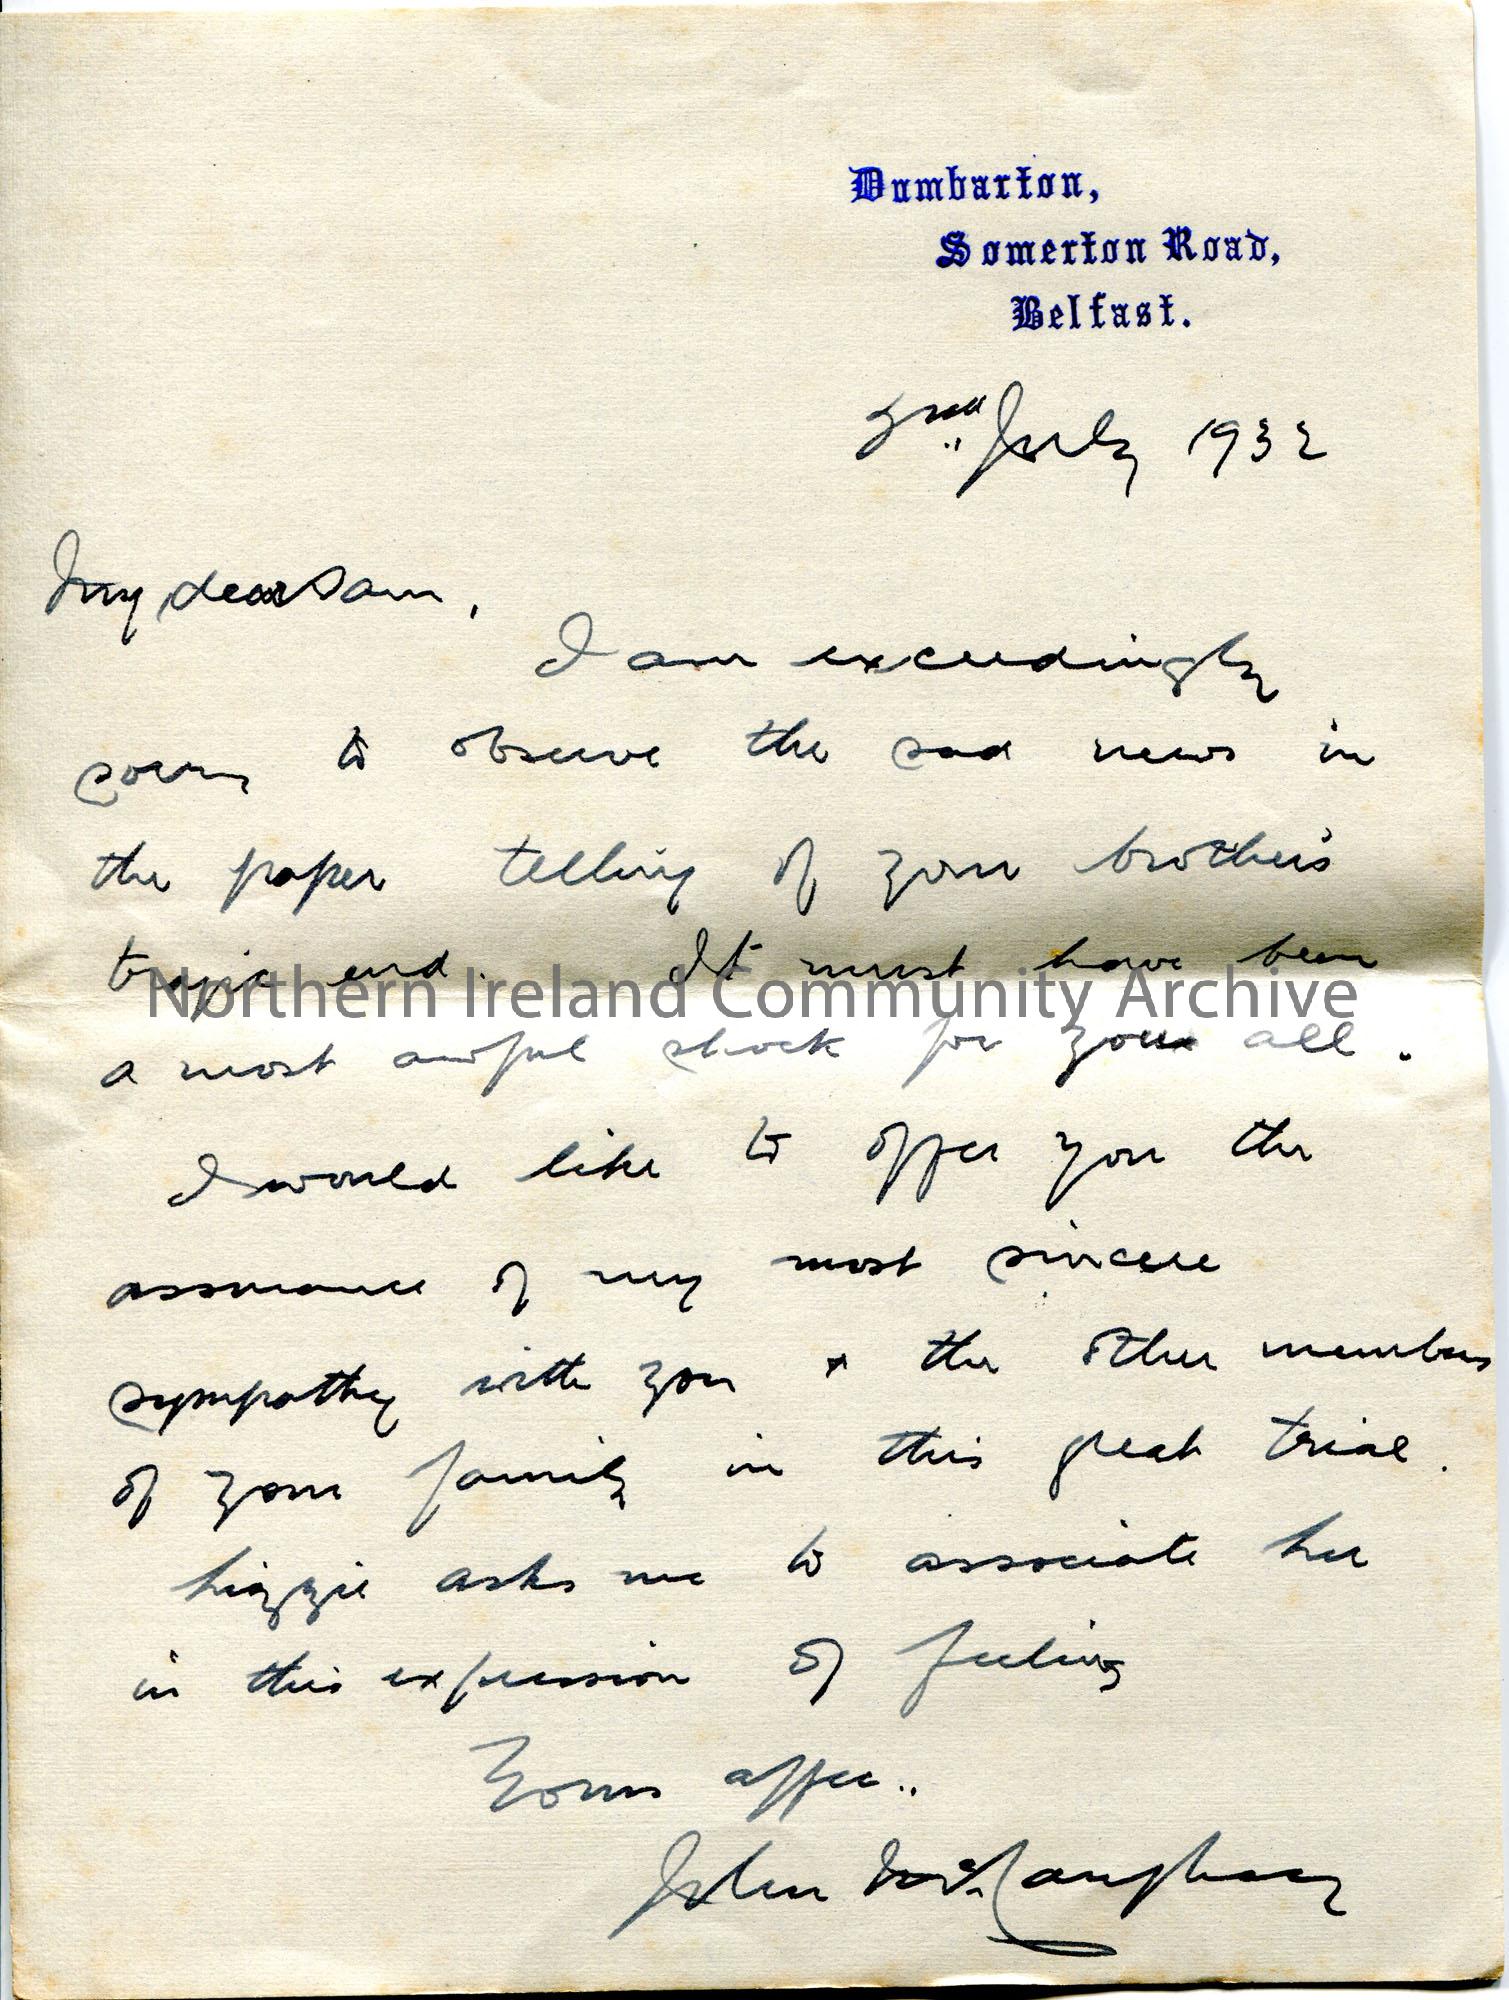 Dumbarton,
Somerton Road,
Belfast.
July 1932
My dear Sam,
I am exceedingly
sorry to observe the sad news in
the paper telling of your brother's
tragic end. It must have been
Northern Ireland Community Archive
a most awful shock for you all.
I would like to offer you the
assurance of my most sincere
sympathy with you & the other members
of your family in this great trial.
Lizzie asks me to associate her
in this expression of feeling
Yours affec..
John